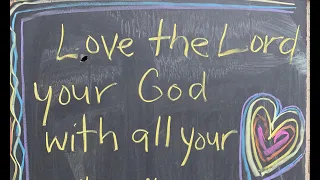 Love the Lord
your God
with all your